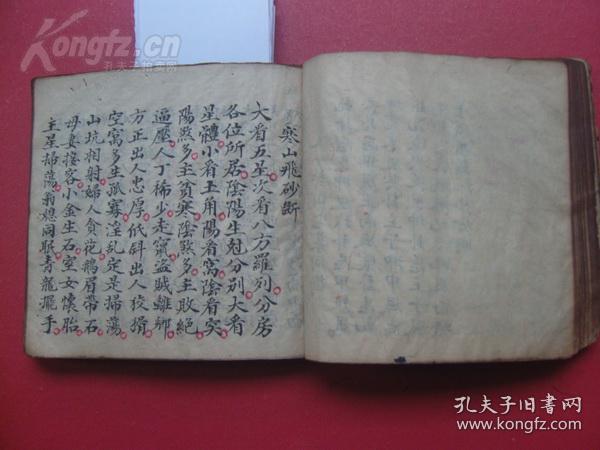 Kongfz.cn
孔夫子拍卖网
寒山飛砂斷
大看五星次看八方羅列分房
各位所居陰陽生尅分别大看
星體小看玉角陽看窩陰看突
陽欺多主貧寒陰欺多主敗絕
逼壓人丁稀少走竄盜賊離鄉
方正出人忠厚低斜出人狡猾
空窩多生孤寡淫乱定是掃蕩
山坑相射婦人貪花鵝眉帶石
母妻接客小金生石室女懷胎
主星掃蕩翁媳同眠青龍擺手
孔夫子旧书网
www.kongfz.com